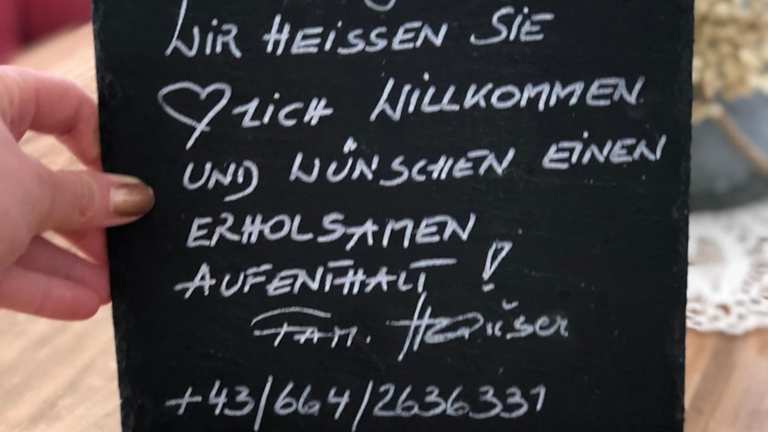 WIR HEISSEN SIE
♡LICH WILLKOMMEN
UND WÜNSCHEN EINEN
ERHOLSAMEN
AUFENTHALT!
FAM.
+43/664/2636331